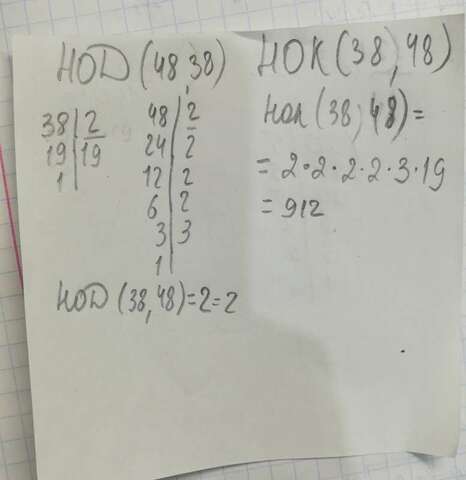 НОД (48,38)
38 | 2
19 | 19
1 |
48 | 2
24 | 2
12 | 2
6 | 2
3 | 3
1 |
НОД (38,48)=2=2
НОК (38,48)
Нок (38,48)=
= 2•2•2•2•3•19
= 912